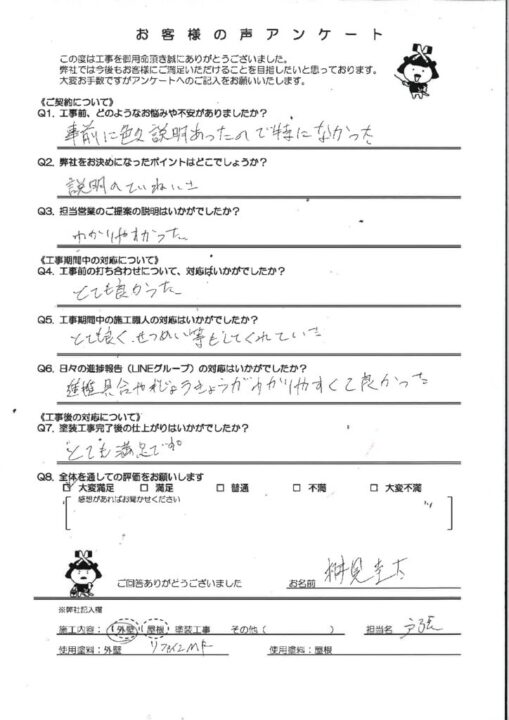 お客様の声アンケート
この度は工事を御用命頂き誠にありがとうございました。
弊社では今後もお客様にご満足いただけることを目指したいと思っております。
大変お手数ですがアンケートへのご記入をお願いいたします。
《ご契約について》
Q1. 工事前、どのようなお悩みや不安がありましたか?
事前に色々説明あったので特になかった
Q2. 弊社をお決めになったポイントはどこでしょうか?
説明のていねいさ
Q3. 担当営業のご提案の説明はいかがでしたか?
わかりやすかった
《工事期間中の対応について》
Q4. 工事前の打ち合わせについて、対応はいかがでしたか?
とても良かった
Q5. 工事期間中の施工職人の対応はいかがでしたか?
とても良く、せつめい等もしてくれていた
Q6. 日々の進捗報告(LINEグループ)の対応はいかがでしたか?
具合やじょうきょうがわかりやすくて良かった
《工事後の対応について》
Q7. 塗装工事完了後の仕上がりはいかがでしたか?
とても満足です。
Q8. 全体を通しての評価をお願いします
□ 大変満足 □ 満足 □ 普通 □ 不満 □ 大変不満
感想があればお聞かせください
ご回答ありがとうございました
お名前
※弊社記入欄
施工内容:(外壁)(屋根)塗装工事 その他( ) 担当名
使用塗料:外壁 リファインMF 使用塗料:屋根